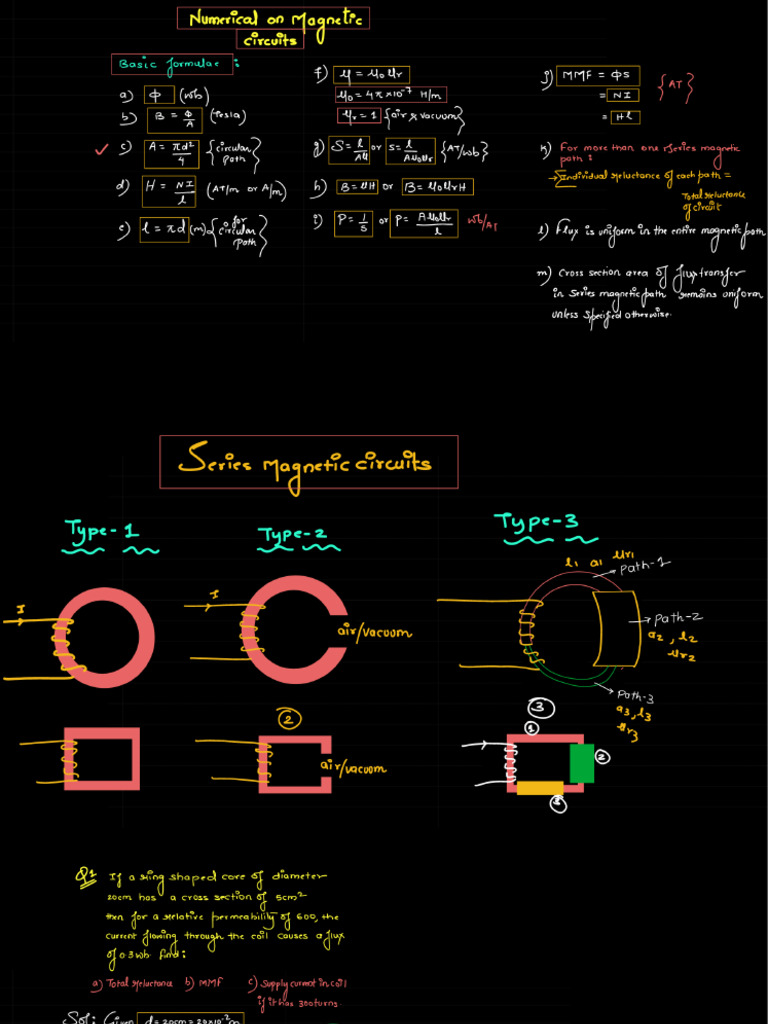 Numerical on Magnetic
circuits
Basic formulae :
a) Φ (wb)
b) B = Φ/A (tesla)
✓ c) A = πd²/4 {circular path}
d) H = NI/l (AT/m or A/m)
e) l = πd (m) {for circular path}
f) μ = μ0μr
μ0 = 4π×10⁻⁷ H/m
μr = 1 {air & vacuum}
g) S = l/Aμ or S = l/Aμ0μr {AT/wb}
h) B = μH or B = μ0μrH
i) P = 1/S or P = Aμ0μr/l wb/AT
j) MMF = ΦS
= NI
= Hl
{AT}
k) For more than one series magnetic
path :
→ Σ Individual reluctance of each path =
Total reluctance
of circuit
l) Flux is uniform in the entire magnetic path
m) Cross section area of flux transfer
in series magnetic path remains uniform
unless specified otherwise.
Series Magnetic circuits
Type-1
Type-2
Type-3
I
I
air/vacuum
l1 a1 μr1
path-1
path-2
a2, l2
μr2
path-3
a3, l3
μr3
2
air/vacuum
3
1
2
3
Q1 If a ring shaped core of diameter
20cm has a cross section of 5cm²
then for a relative permeability of 600, the
current flowing through the coil causes a flux
of 0.3 wb find :
a) Total reluctance b) MMF c) Supply current in coil
if it has 300 turns.
Sol : Given d = 20cm = 20×10⁻² m